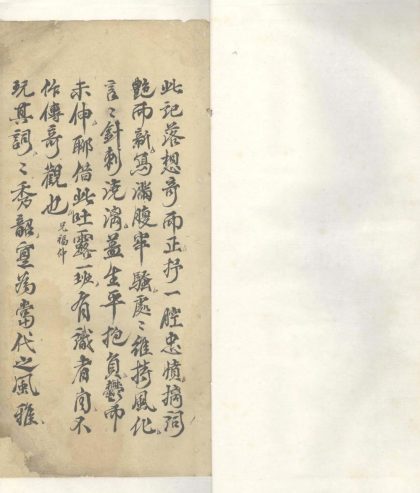 此記落想奇而正抒一腔忠憤摛詞
艷而新寫滿腹牢騷處〻維持風化
言〻針刺澆漓蓋生平抱負鬱而
未伸聊借此吐露一班有識者自不
作傳奇觀也 兄福
玩其詞〻秀韶寔為當代之風雅